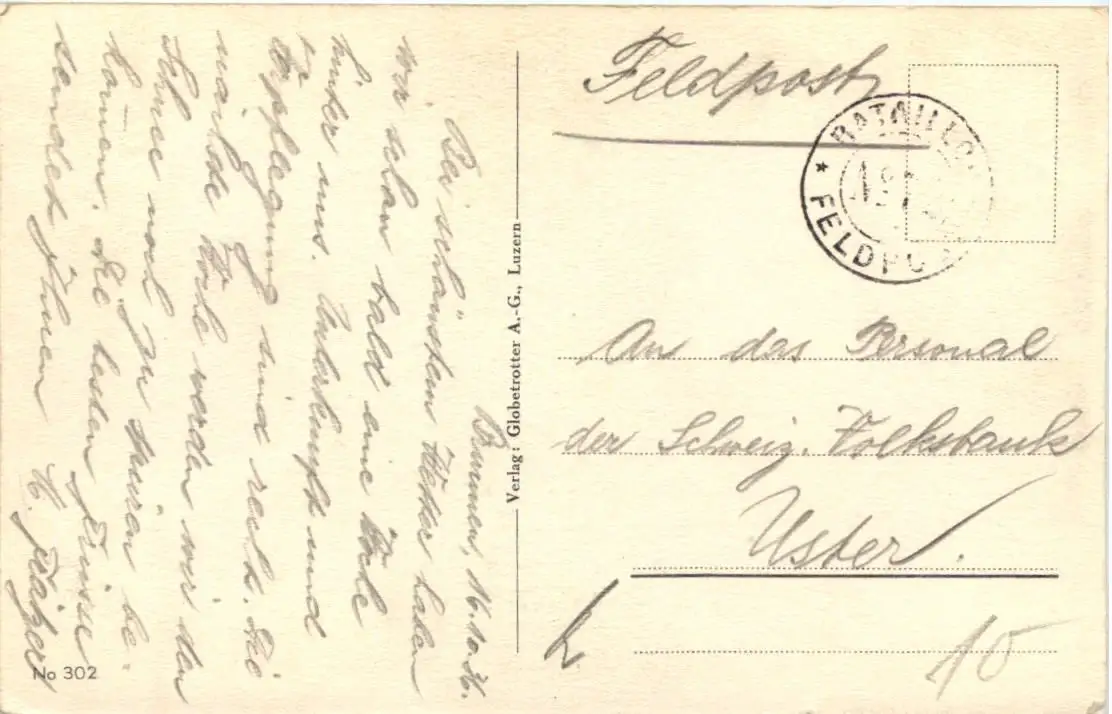 Brunnen, 16.10.36.
Bei schönstem Wetter haben
wir schon bald eine Woche
hinter uns. Unterkunft und
Verpflegung sind recht. Die
nächste Woche werden wir den
Schnee noch zu spüren be-
kommen. Die besten Grüsse
sendet Ihnen
Verlag: Globetrotter A.-G., Luzern
No 302
Feldpost
BATAILLO
* FELDPO
An das Personal
der Schweiz. Volksbank
Uster.
10